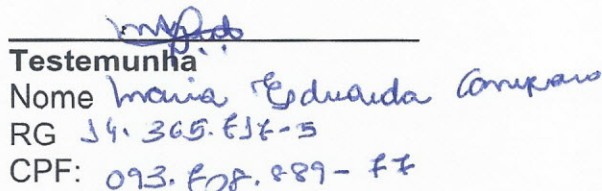 Testemunha
Nome Maria Eduarda
RG 14.365.717-5
CPF: 093.708.889-77